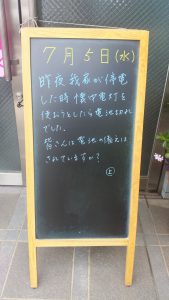 ７月５日(水)
昨夜我家が停電
した時懐中電灯を
使おうとしたら電池切れ
でした。
皆さんは電池の備えは
されていますか？
上